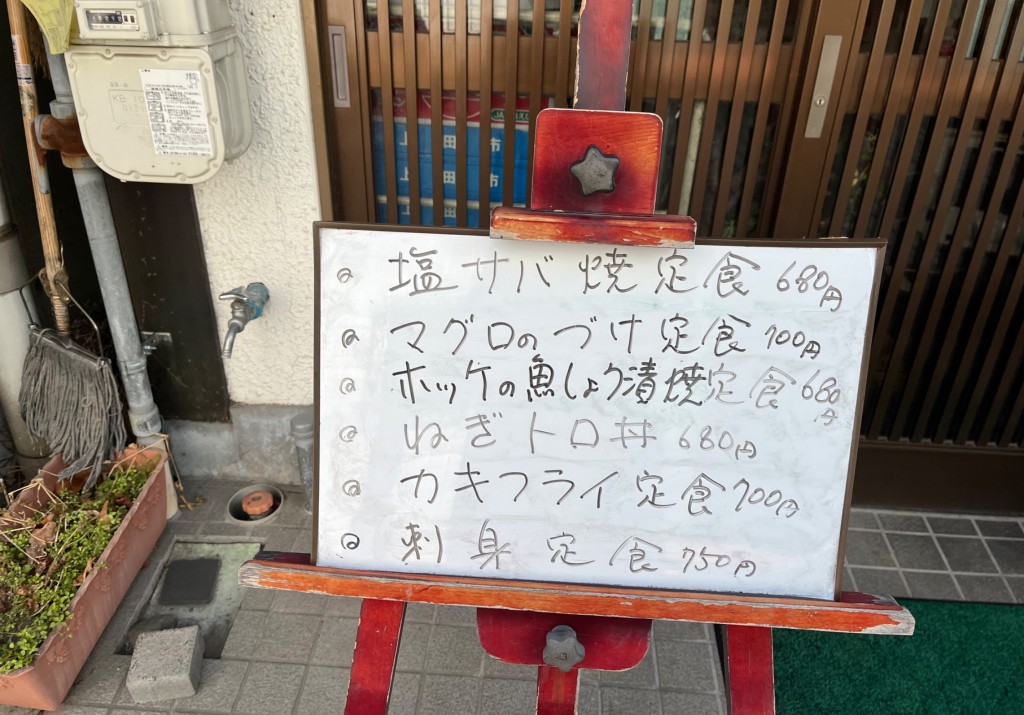 塩サバ焼定食 680円
マグロのづけ定食 700円
ホッケの魚しょう漬焼定食 680円
ねぎトロ丼 680円
カキフライ定食 700円
刺身定食 750円